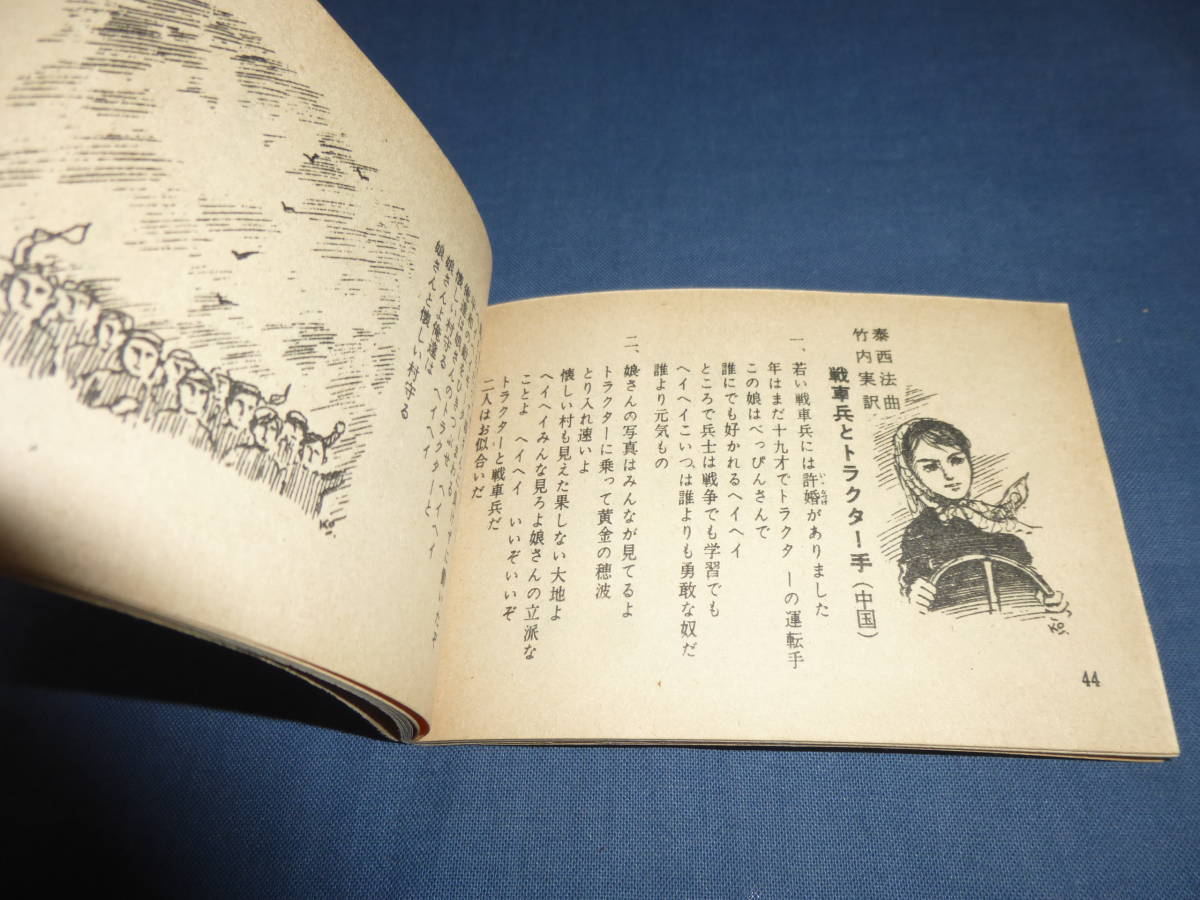 44
戦車兵とトラクター手(中国)
泰西法曲
竹内実訳
一、若い戦車兵には許婚がありました
いいなずけ
年はまだ十九才でトラクターの運転手
この娘はべっぴんさんで
誰にでも好かれるヘイヘイ
ところで兵士は戦争でも学習でも
ヘイヘイこいつは誰よりも勇敢な奴だ
誰より元気もの
二、娘さんの写真はみんなが見てるよ
トラクターに乗って黄金の穂波
とり入れ速いよ
懐しい村も見えた果しない大地よ
ヘイヘイみんな見ろよ娘さんの立派な
ことよ ヘイヘイ いいぞいいぞ
トラクターと戦車兵だ
二人はお似合いだ
懐しい村守る ヘイヘイ
娘さんよ俺達は
娘さんと懐しい村守る